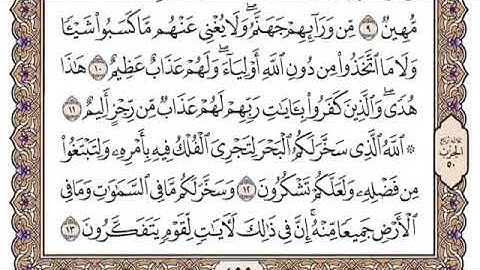 مُّهِينٌ ۝٩ مِّن وَرَآئِهِمْ جَهَنَّمُ ۖ وَلَا يُغْنِى عَنْهُم مَّا كَسَبُوا۟ شَيْـًٔا
وَلَا مَا ٱتَّخَذُوا۟ مِن دُونِ ٱللَّهِ أَوْلِيَآءَ ۖ وَلَهُمْ عَذَابٌ عَظِيمٌ ۝١٠ هَـٰذَا
هُدًى ۖ وَٱلَّذِينَ كَفَرُوا۟ بِـَٔايَـٰتِ رَبِّهِمْ لَهُمْ عَذَابٌ مِّن رِّجْزٍ أَلِيمٌ ۝١١
۞ ٱللَّهُ ٱلَّذِى سَخَّرَ لَكُمُ ٱلْبَحْرَ لِتَجْرِىَ ٱلْفُلْكُ فِيهِ بِأَمْرِهِۦ وَلِتَبْتَغُوا۟
مِن فَضْلِهِۦ وَلَعَلَّكُمْ تَشْكُرُونَ ۝١٢ وَسَخَّرَ لَكُم مَّا فِى ٱلسَّمَـٰوَٰتِ وَمَا فِى
ٱلْأَرْضِ جَمِيعًا مِّنْهُ ۚ إِنَّ فِى ذَٰلِكَ لَـَٔايَـٰتٍ لِّقَوْمٍ يَتَفَكَّرُونَ ۝١٣
الحزب
٥٠